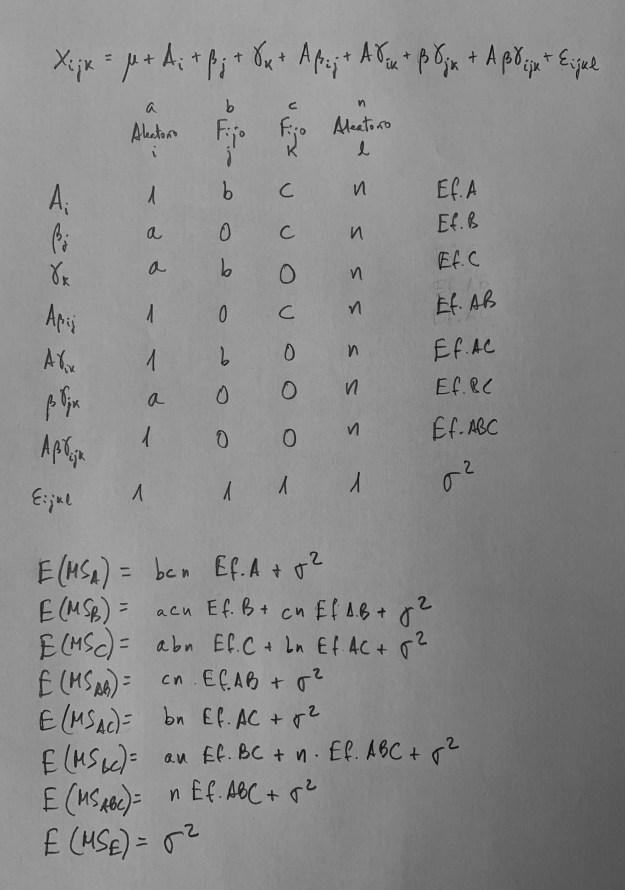 Xijk = μ + Ai + βj + γk + Aβij + Aγik + βγjk + Aβγijk + εijkl
a b c n
Aleatorio Fijo Fijo Aleatorio
i j k l
Ai 1 b c n Ef. A
βj a 0 c n Ef. B
γk a b 0 n Ef. C
Aβij 1 0 c n Ef. AB
Aγik 1 b 0 n Ef. AC
βγjk a 0 0 n Ef. BC
Aβγijk 1 0 0 n Ef. ABC
εijkl 1 1 1 1 σ²
E(MSA) = bcn Ef. A + σ²
E(MSB) = acn Ef. B + cn Ef A.B + σ²
E(MSC) = abn Ef. C + bn Ef AC + σ²
E(MSAB) = cn . Ef. AB + σ²
E(MSAC) = bn Ef. AC + σ²
E(MSbC) = an Ef. BC + n . Ef. ABC + σ²
E(MSABC) = n Ef. ABC + σ²
E(MSE) = σ²